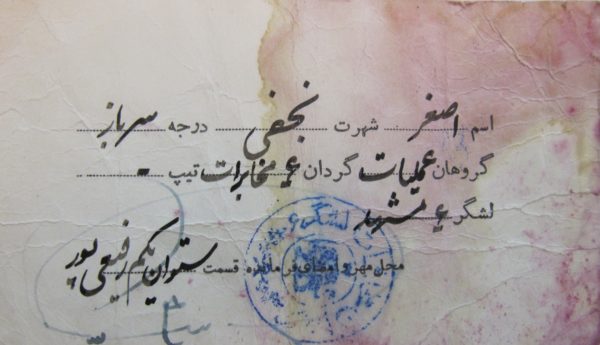 اسم اصغر شهرت نجفی درجه سرباز
گروهان عملیات گردان ع مخابرات تیپ
لشگر ع مشهد
محل مهر و امضای فرمانده قسمت ستوان یکم رفیعی پور
لشگر ۶